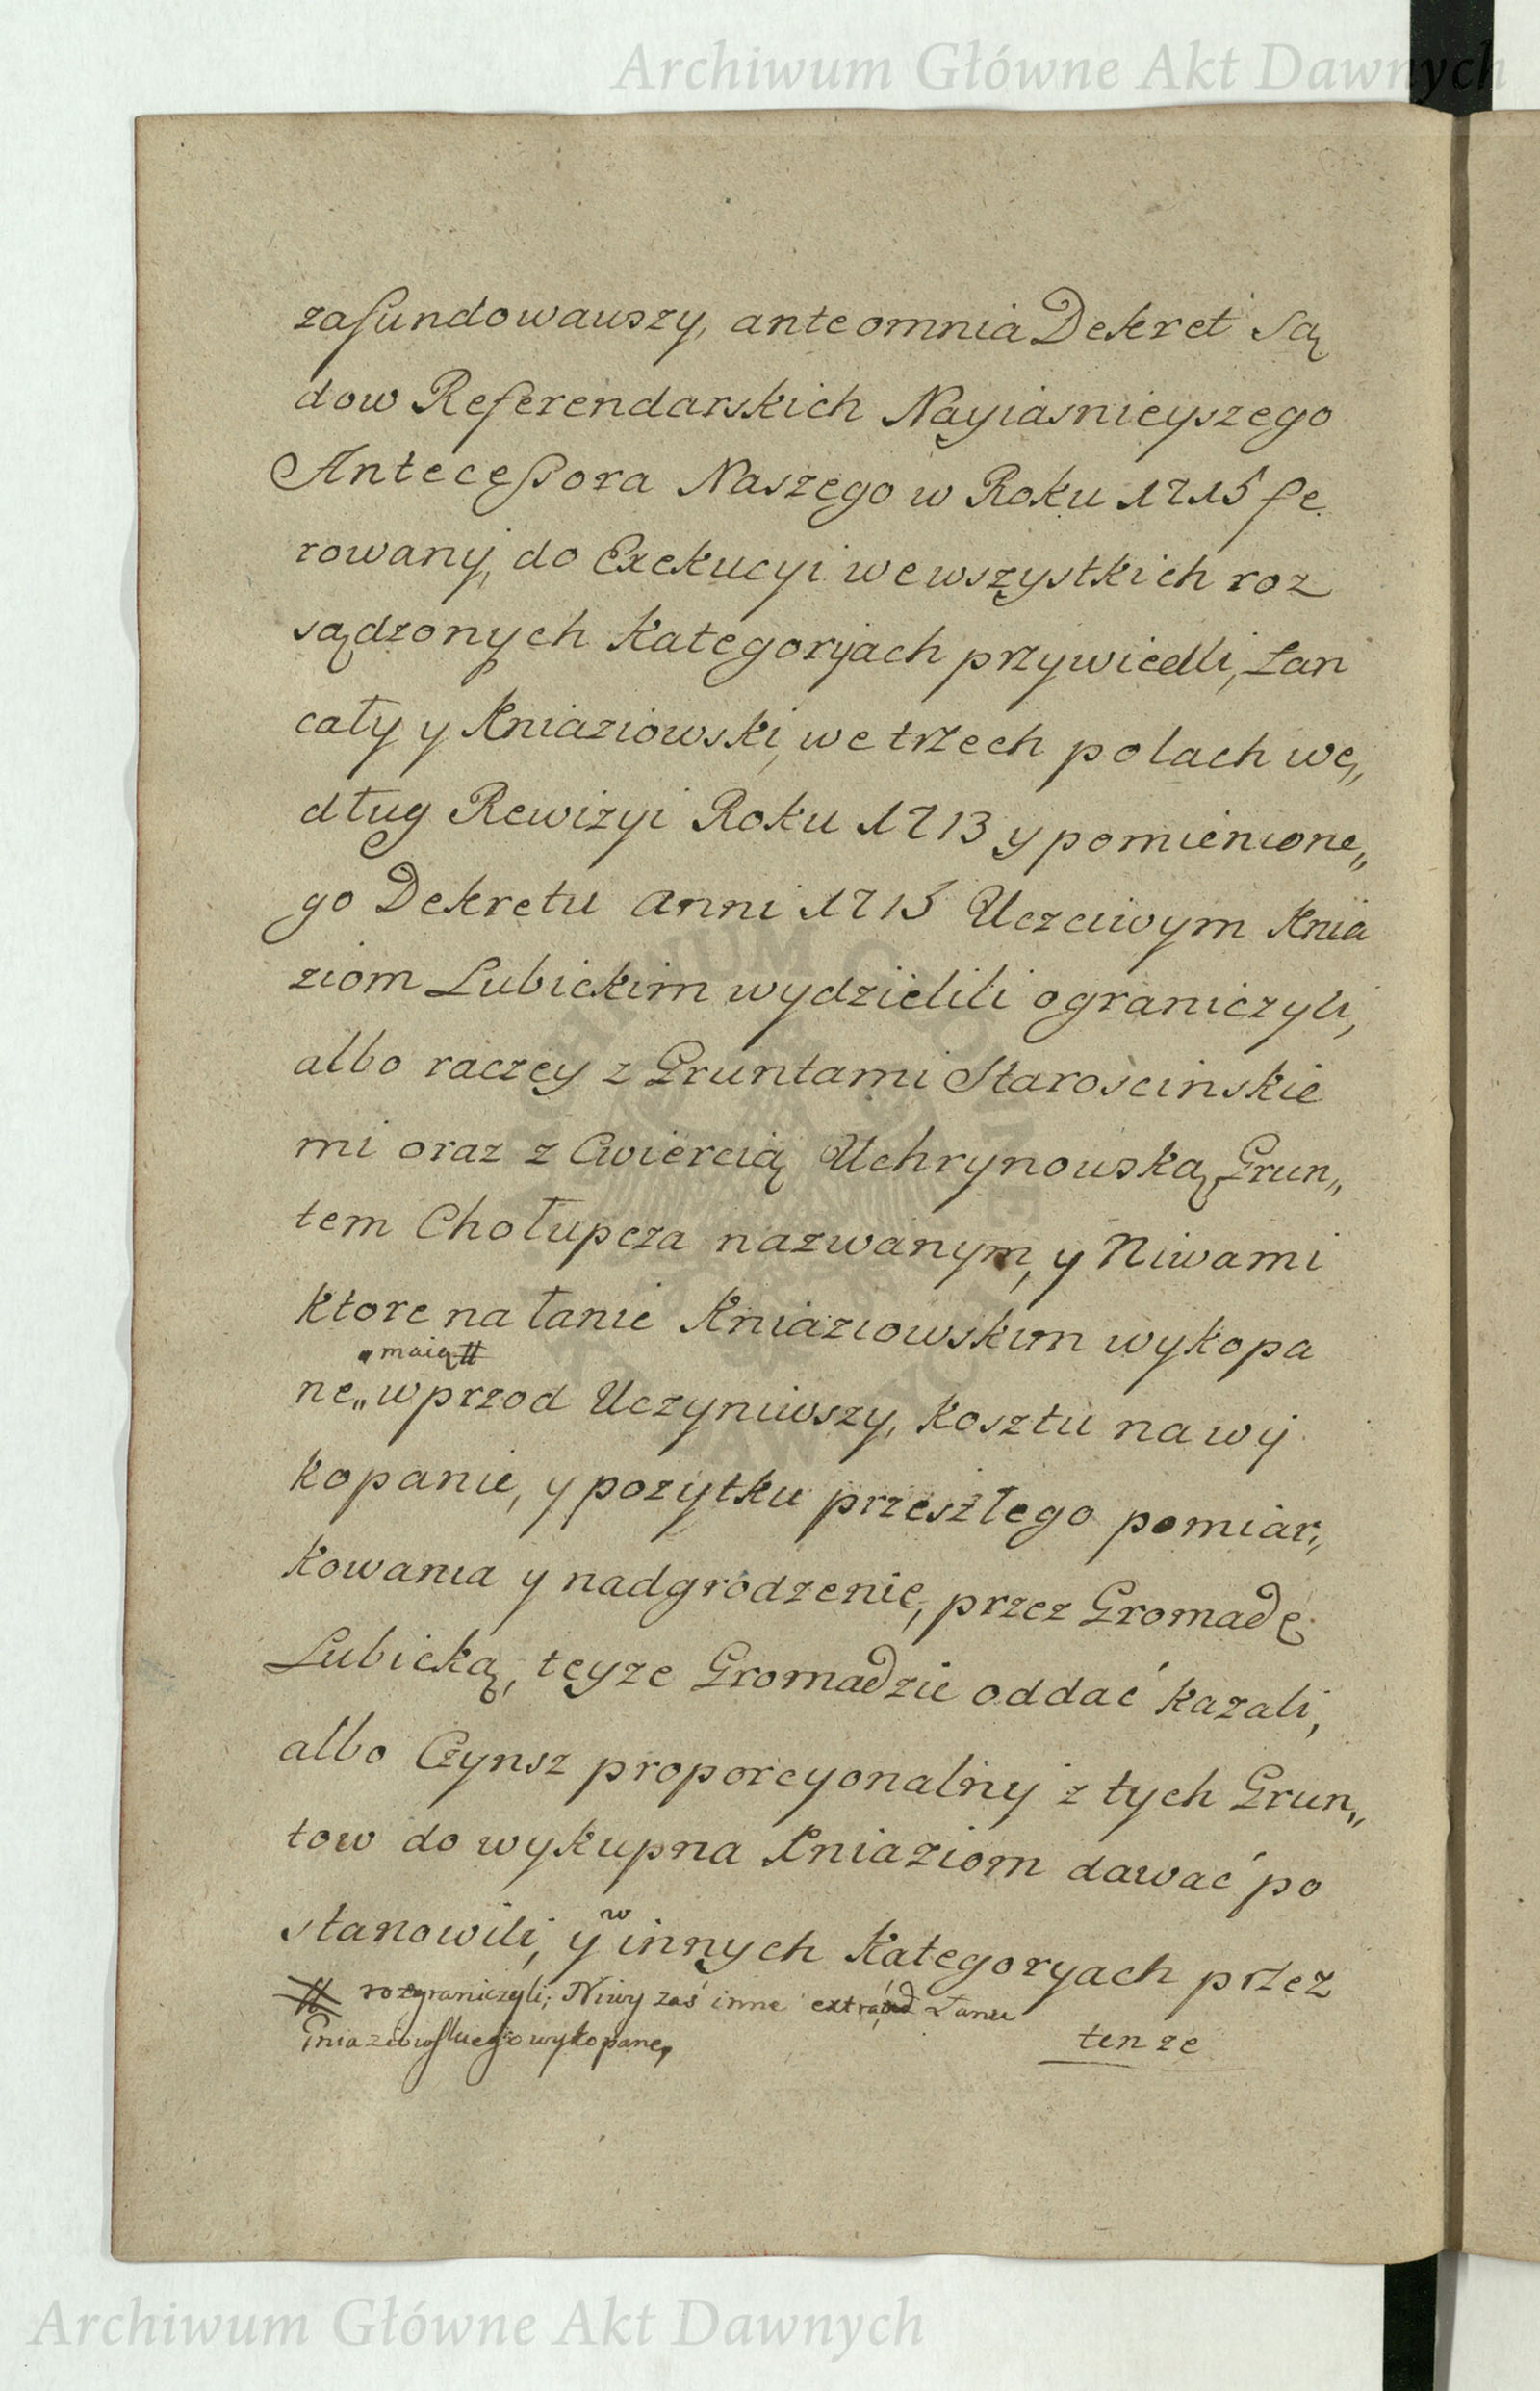 Archiwum Główne Akt Dawnych
zafundowawszy, ante omnia Dekret Są
dow Referendarskich Nayiasnieyszego
Antecessora Naszego w Roku 1715 fe
rowany, do Exekucyi we wszystkich roz
sądzonych Kategoryjach przywiedli, Łan
cały y Kniaziowski, we trzech polach we„
dług Rewizyi Roku 1713 y pomienione„
go Dekretu anni 1715 Uczciwym Knia
ziom Lubickim wydzielili ograniczyli,
albo raczey z Gruntami Starościnskie
mi oraz z Cwiercią Uchrynowską, Grun„
tem Chołupcza nazwanym, y Niwami
ktore na łanie Kniaziowskim wykopa
maią #
ne„ wprzod Uczyniwszy, kosztu na wy
kopanie, y pozytku przeszłego pomiar„
kowania y nadgrodzenie, przez Gromadę
Lubicką, teyze Gromadzie oddać kazali,
albo Czynsz proporcyonalny z tych Grun„
tow do wykupna Kniaziom dawać po
stanowili, y w innych Kategoryach przez
# rozgraniczyli; Niwy zaś inne extra Łanu
Kniaziowskiego wykopane,
tenze
Archiwum Główne Akt Dawnych